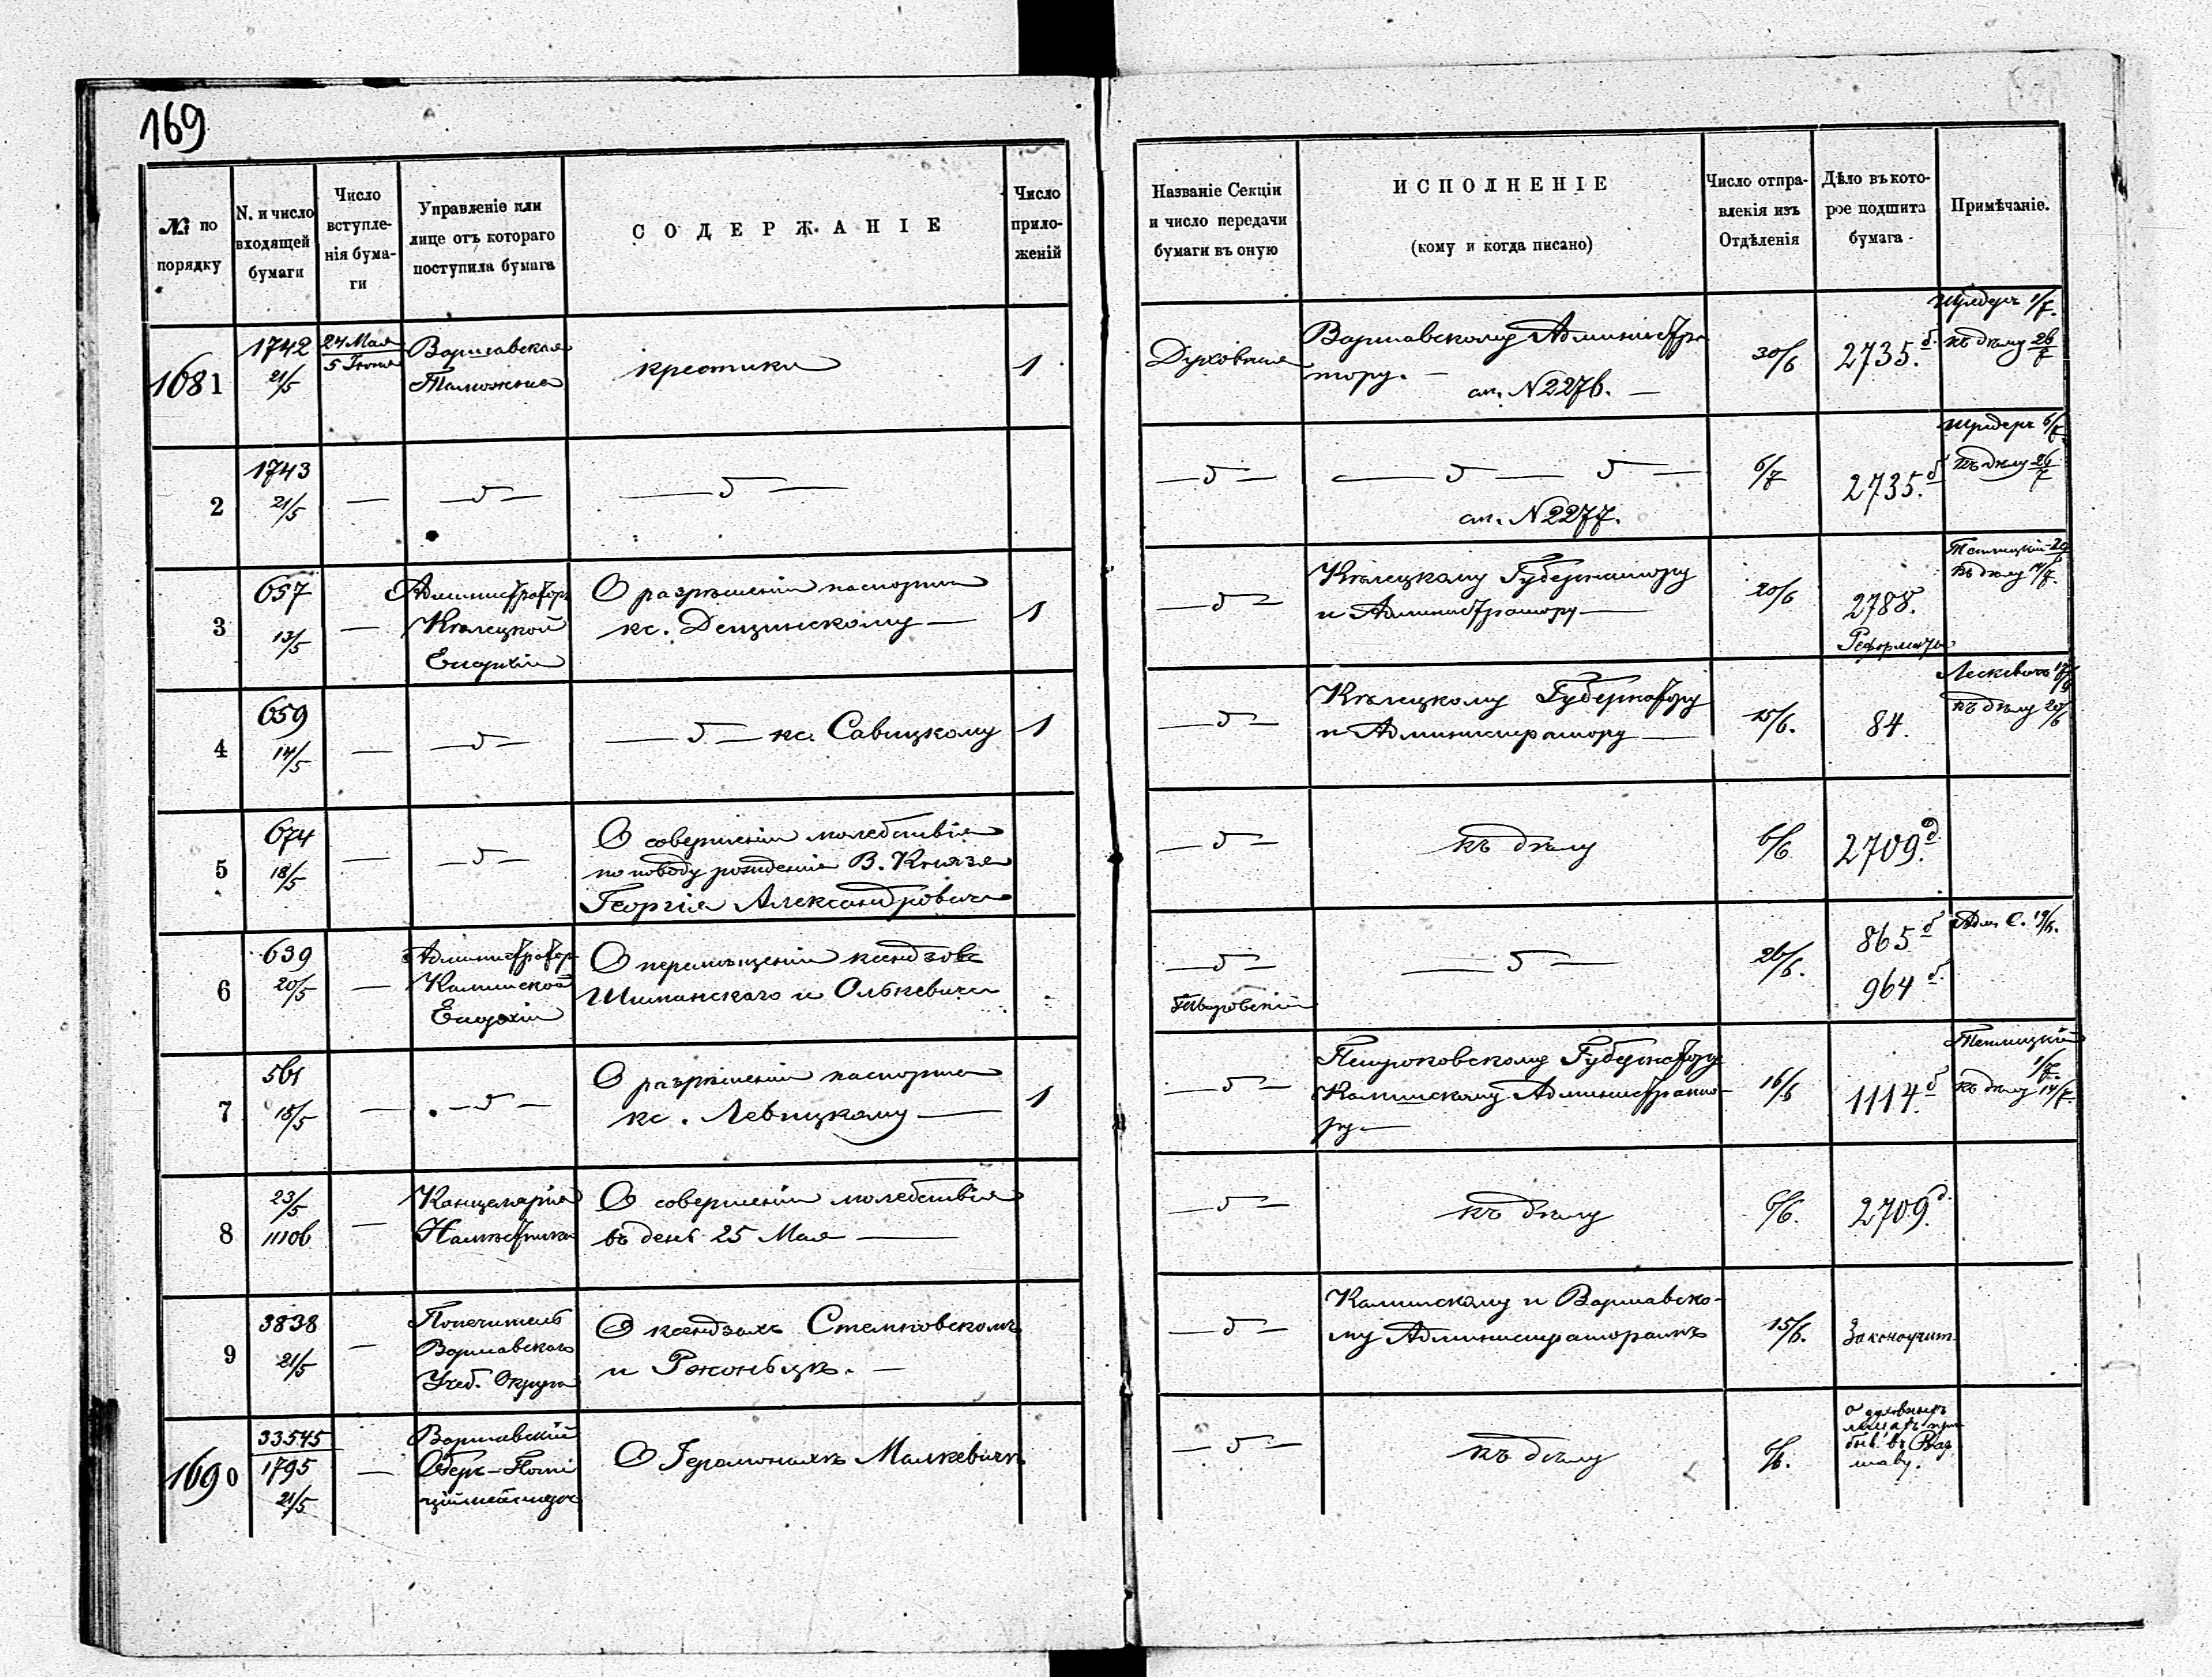 169
№ по порядку
N. и число входящей бумаги
Число вступле-нія бума-ги
Управленіе или лице отъ котораго поступила бумага
СОДЕРЖАНІЕ
Число прило-женій
Названіе Секціи и число передачи бумаги въ оную
ИСПОЛНЕНІЕ
(кому и когда писано)
Число отпра-вленія изъ Отдѣленія
Дѣло въ кото-рое подшита бумага
Примѣчаніе.
1681
1742
21/5
24 Мая
5 Іюня
Варшавская
Таможня
крестики
1
Духовная
Варшавскому Администра
тору. —
сл. N 2276. —
30/6
2735.б.
Шредеръ 1/7.
къ дѣлу 26/7
2
1743
21/5
—
— „ —
— „ —
— „ —
— „ — „ —
сл. N 2277.
6/7
2735.б
Шредеръ 6/7
къ дѣлу 26/7
3
657
13/5
—
Администраторъ
Кѣлецкой
Епархіи
О разрѣшеніи паспорта
кс. Дензинскому —
1
— „ —
Кѣлецкому Губернатору
и Администратору —
20/6
2788.
Реформаты
къ дѣлу 14/7.
4
659
14/5
—
— „ —
— „ — кс. Савицкому
1
— „ —
Кѣлецкому Губернатору
и Администратору —
15/6.
84.
Лескевичъ
къ дѣлу 20/6
5
674
18/5
—
— „ —
О совершеніи молебствія
по поводу рожденія В. Князя
Георгія Александровича
— „ —
къ дѣлу
6/6
2709.д
6
639
20/5
—
Администраторъ
Калишской
Епархіи
О перемѣщеніи ксендзовъ
Шиманскаго и Олькевича
— „ —
— „ —
26/6.
865 б
964 б.
Адм. С. 19/6.
7
561
18/5
—
— „ —
О разрѣшеніи паспорта
кс. Левицкому —
1
— „ —
Петроковскому Губернатору
Калишскому Администрато-
ру —
16/6
1114.б
къ дѣлу 14/7.
8
23/5
11106
—
Канцелярія
Намѣстника
О совершеніи молебствія
въ день 25 Мая —
— „ —
къ дѣлу
6/6.
2709.д.
9
3838
21/5
—
Попечитель
Варшавскаго
Учеб. Округа
О ксендзахъ Стемповскомъ
и Ржоньцѣ. —
— „ —
Калишскому и Варшавско-
му Администраторамъ
15/6.
Законоучит.
1690
33545
1795
21/5
—
Варшавскій
Оберъ-Поли
ціймейстеръ
О Іеромонахѣ Малкевичѣ
— „ —
къ дѣлу
6/6.
о духовныхъ
лицахъ при
быв. въ Вар
шаву.